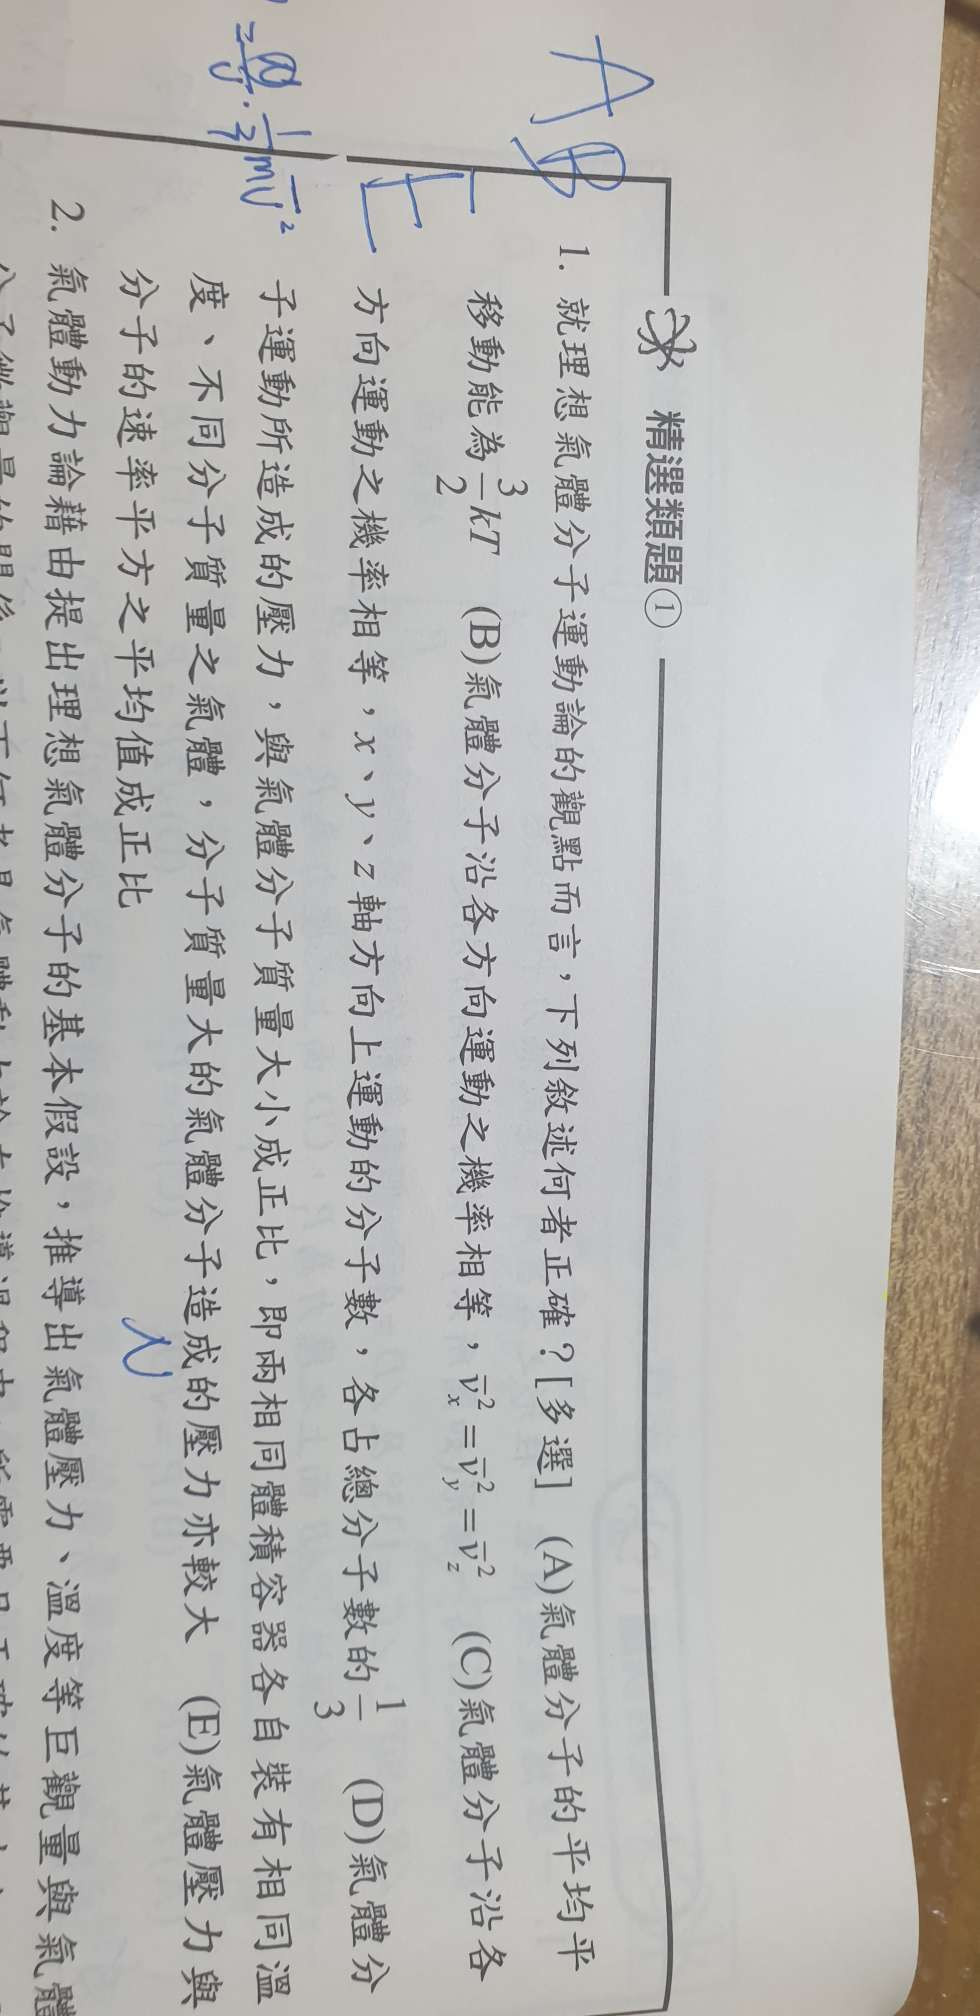 精選類題①
1. 就理想氣體分子運動論的觀點而言，下列敘述何者正確？[多選] (A)氣體分子的平均平
移動能為3/2 kT (B)氣體分子沿各方向運動之機率相等，v̄ₓ² = v̄ᵧ² = v̄_z² (C)氣體分子沿各
方向運動之機率相等，x、y、z軸方向上運動的分子數，各占總分子數的1/3 (D)氣體分
子運動所造成的壓力，與氣體分子質量大小成正比，即兩相同體積容器各自裝有相同溫
度、不同分子質量之氣體，分子質量大的氣體分子造成的壓力亦較大 (E)氣體壓力與
分子的速率平方之平均值成正比
2. 氣體動力論藉由提出理想氣體分子的基本假設，推導出氣體壓力、溫度等巨觀量與氣體
AB
E
N